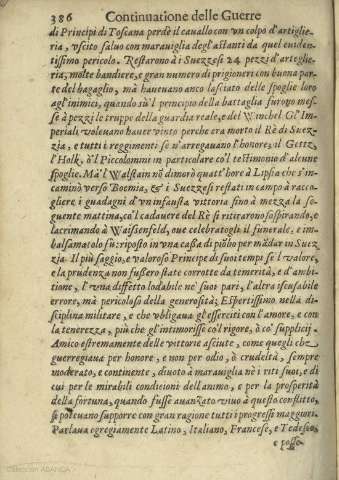 386 Continuatione delle Guerre
di Principi di Toscana perdè il cauallo con vn colpo d'artiglie-
ria, vscito saluo con marauiglia degl'astanti da quel euiden-
tissimo pericolo. Restarono à i Suezzesi 24 pezzi d'arteglie-
ria, molte bandiere, e gran numero di prigioneri con buona par-
te del bagaglio, mà haueuano anco lasciato delle spoglie loro
agl'inimici, quando sù'l principio della battaglia furono mes-
se à pezzi le truppe della guardia reale, e del Winchel. Gl'Im-
periali voleuano hauer vinto perche era morto il Rè di Suez-
zia, e tutti i reggimenti se n'arregauano l'honore, il Gettz,
l'Holk, ò'l Piccolomini in particolare co'l testimonio d'alcune
spoglie. Ma'l Walstain nō dimorò quatt'hore à Lipsia che s'in-
caminò verso Boemia, & i Suezzesi restati in campo à racco-
gliere i guadagni d'vn infausta vittoria fino à mezza la se-
guente mattina, co'l cadauer del Rè si ritirarono sospirando, e
lacrimando à Waissenfeld, oue celebratogli il funerale, e im-
balsamatolo fù riposto in vna cassa di piōbo per mādar in Suez-
zia. Il più saggio, e valoroso Principe di suoi tempi se l valore,
e la prudenza non fussero state corrotte da temerità, e d'ambi-
tione, l'vna diffetto lodabile ne' suoi pari, l'altra iscusabile
errore, mà pericoloso della generosità; Espertissimo nella di-
sciplina militare, e che obligaua gl'esserciti con l'amore, e con
la tenerezza, più che gl'intimorisse co'l rigore, ò co' supplicij.
Amico estremamente delle vittorie asciute, come quegli che
guerregiaua per honore, e non per odio, ò crudeltà, sempre
moderato, e continente, diuoto à marauiglia nè i riti suoi, e di
cui per le mirabili condicioni dell'animo, e per la prosperità
della fortuna, quando fusse auanzato viuo à questo conflitto,
si poteuano supporre con gran ragione tutti i progressi maggiori.
Parlaua egregiamente Latino, Italiano, Francese, e Tedesco,
e posse-
Colección ABANCA